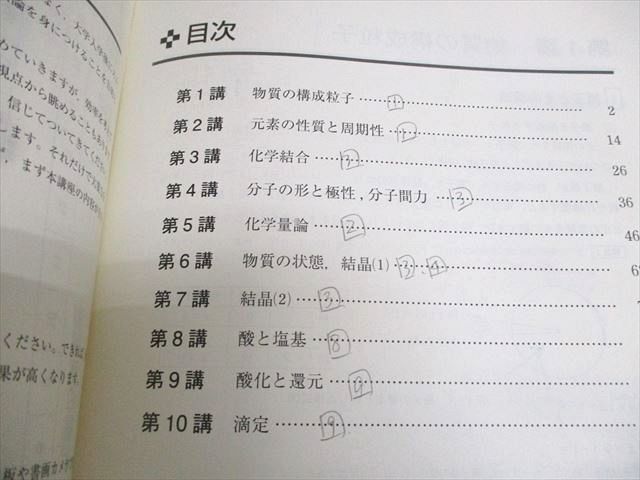 目次
第1講 物質の構成粒子 …… 1 …… 2
第2講 元素の性質と周期性 …… …… 14
第3講 化学結合 …… 2 …… 26
第4講 分子の形と極性，分子間力 …… 3 …… 36
第5講 化学量論 …… 2 …… 46
第6講 物質の状態，結晶(1) …… 3.4 …… 6
第7講 結晶(2) …… 3 ……
第8講 酸と塩基 …… 8 ……
第9講 酸化と還元 …… 9 ……
第10講 滴定 …… 9 ……
論を身につけること
めていきますが，効率を
視点から眺めることもあり
信じてついてきてくださ
します。それだけで大変
，まず本講座の内容が
ください。できれば
果が高くなります。
板や書画カメラ